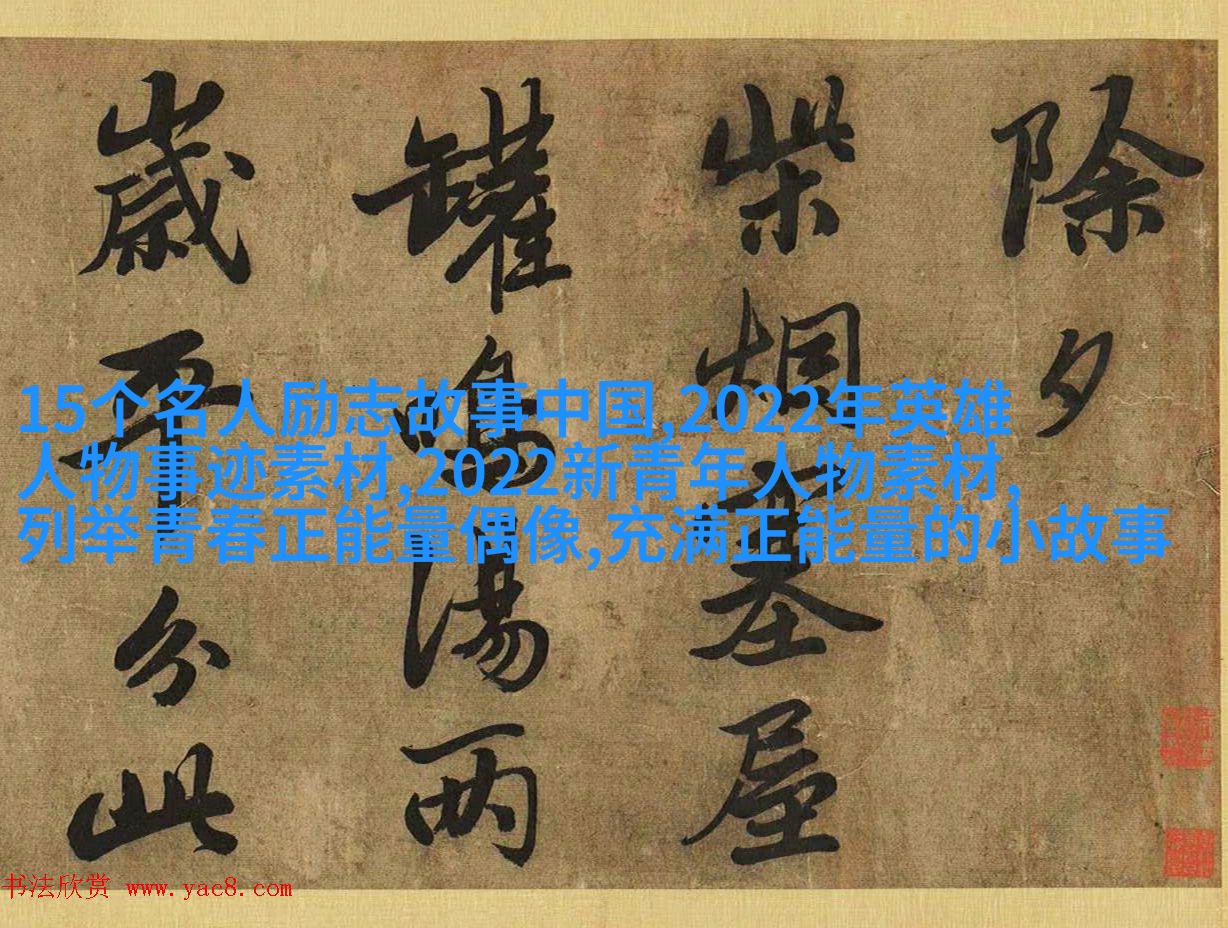 除夕
柴烟塞屋
罐鳴湯兩
歲平分此
15个名人励志故事中国,2022年英雄
人物事迹素材,2022新青年人物素材,
列举青春正能量偶像,充满正能量的小故事
书法欣赏 www.yac8.com